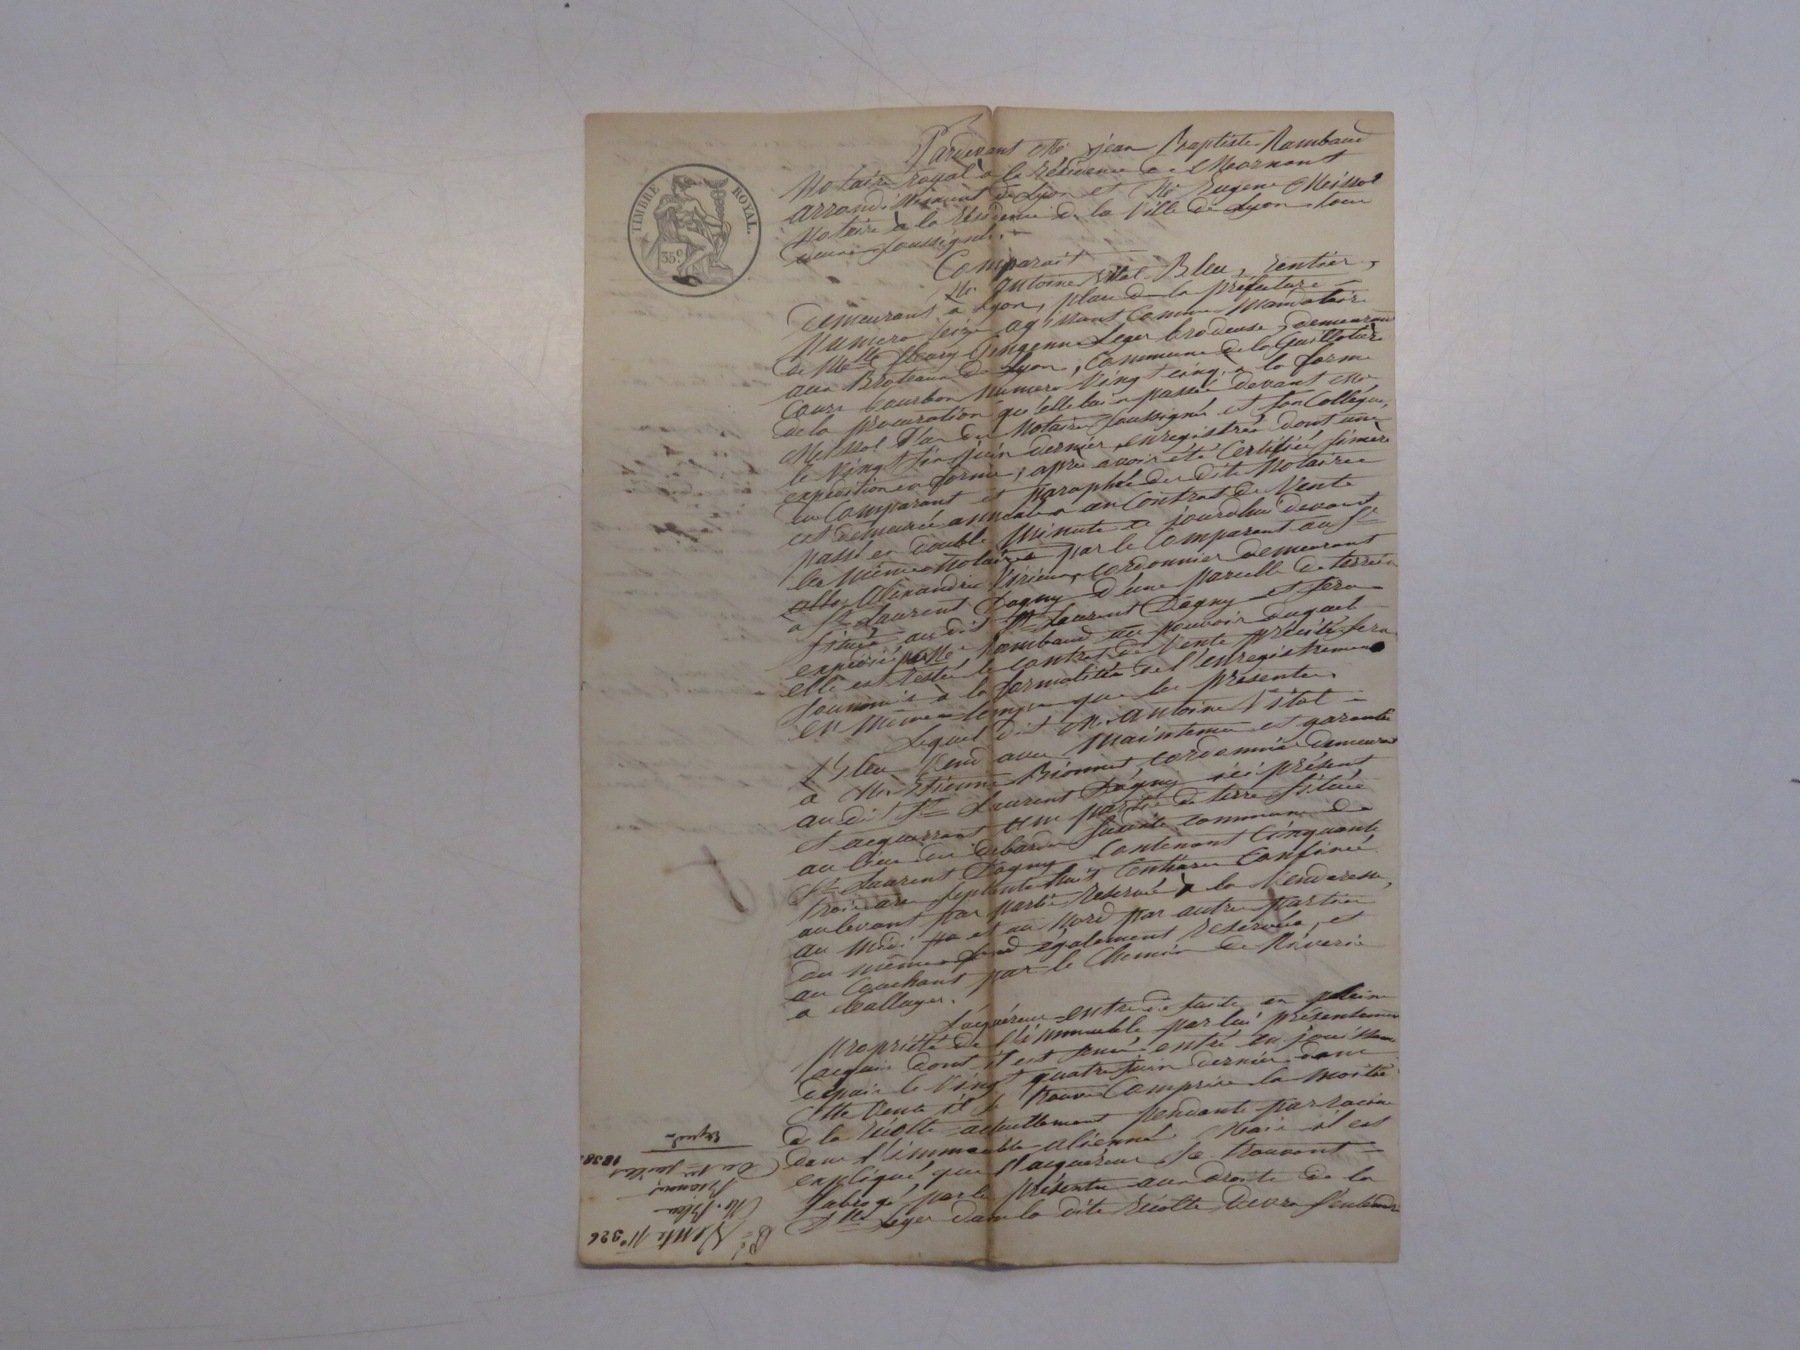 TIMBRE ROYAL.
35 c.
Pardevant Me jean Baptiste Rambaud
Notaire royal à la résidence de Mornant
arrondissement de Lyon et Me Eugene Messol
Notaire à la résidence de la Ville de Lyon, tous
deux soussignés.
Comparait
Mr. Antoine Vital Bleu, rentier,
demeurant à Lyon, place de la préfecture
Numéro seize agissant comme mandataire
de Melle fleury Leger brodeuse, demeurant
aux Broteaux de Lyon, Commune de la Guillotière
Cours bourbon numéro Vingt cinq, à la forme
de la procuration qu'elle lui a passée devant Me
Messol l'un des Notaires soussigné et son Collègue,
le Vingt six juin dernier, enregistrée dont une
expédition en forme, après avoir été Certifiée sincère
du Comparant et paraphée des dits Notaires
est demeurée annexée a un Contrat de Vente
passé en double Minute ce jourdhui devant
les mêmes Notaires par le Comparant au Sr
Alexandre cordonnier demeurant
à St Laurent Dagny d'une parcelle de terrein
située au dit St Laurent Dagny et sera
expédié par Me Rambaud au pouvoir duquel
elle est restée le contrat de Vente précité sera
soumis à la formalité de l'enregistrement
en même temps que les présentes.
Lequel dit Mr. Antoine Vital
Bleu Vend avec Maintenue et garantie
à Mr. Etienne cordonnier demeurant
au dit St Laurent Dagny ici présent
et acquerrant Une partie de terre située
au lieu du susdite commune de
St Laurent Dagny Contenant Cinquante
trois ares septante huit Centiares Confinée
au levant par partie réservée à la Venderesse,
au midi et au Nord par autres parties
du même fond également réservées, et
au Couchant par le Chemin de Riverie
à
L'acquéreur entre de suite en pleine
propriété de l'immeuble par lui présentement
acquis dont il est sensé entré en jouissance
depuis le Vingt quatre juin dernier dans
cette Vente il se trouve Comprise la moitié
de la récolte actuellement pendante par racine
dans l'immeuble aliéné Mais il est
expliqué, que l'acquéreur se trouvant
subrogé par les présentes aux droits de la
Dlle Leger dans la dite récolte devra s'entendre
Vente No 326
Mr. Bleu
Du 1er juillet 1838
Expédn